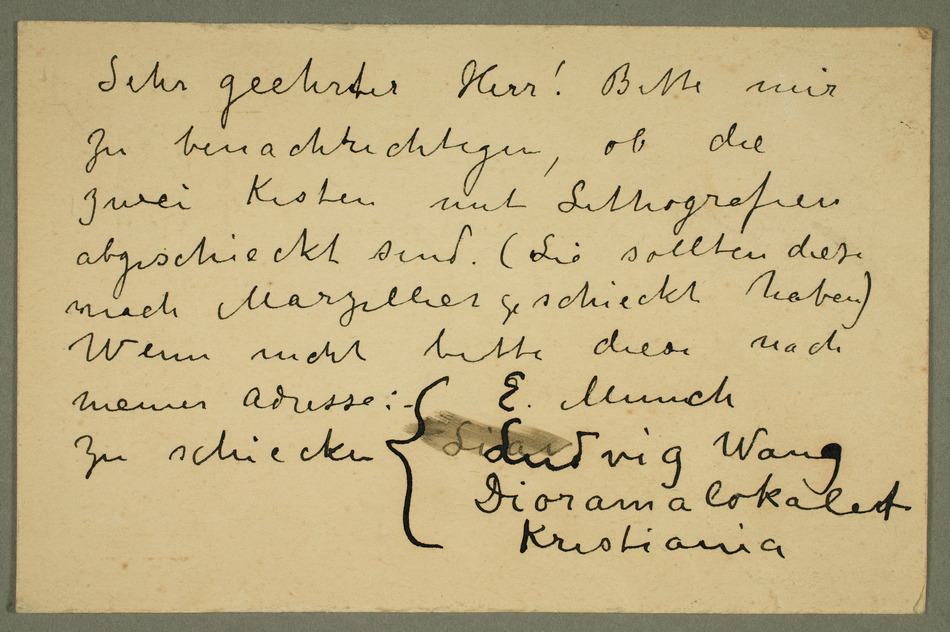 Sehr geehrter Herr! Bitte mir
zu benachrichtigen, ob die
zwei Kisten mit Lithografien
abgeschieckt sind. (Sie sollten diese
nach Marzellier geschieckt haben)
Wenn nicht bitte diese nach
meiner Adresse:- E. Munch
zu schiecken Ludvig Wang
Dioramalokalet
Kristiania